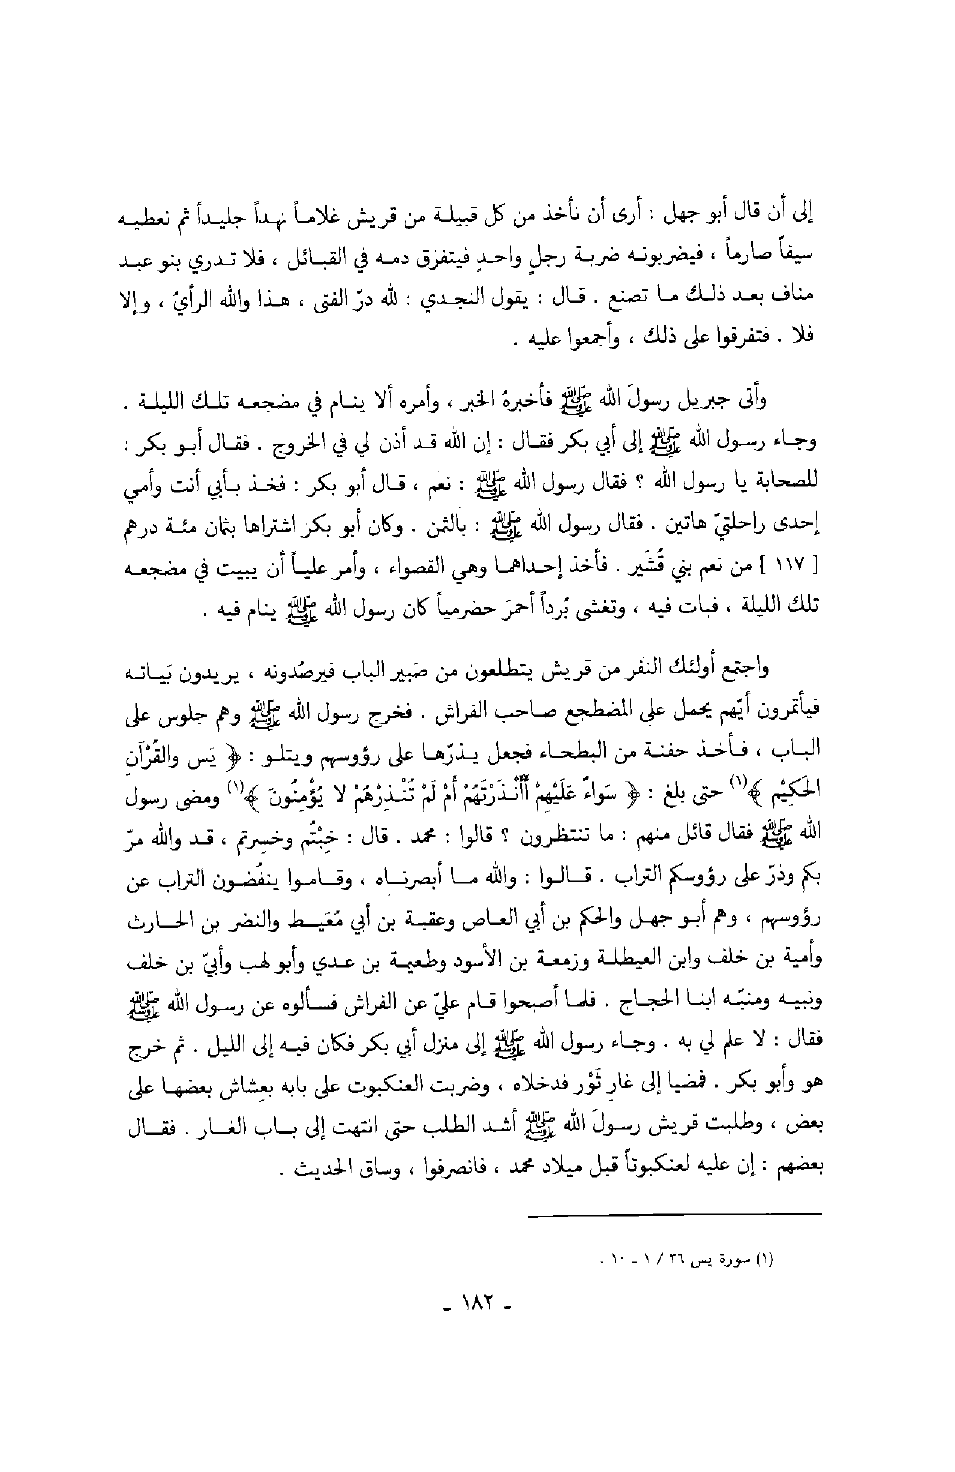 إلى أن قال أبو جهل : أرى أن نأخذ من كل قبيلة من قريش غلاماً نهداً جليداً ثم نعطيه
سيفاً صارماً ، فيضربونه ضربة رجلٍ واحدٍ فيتفرق دمه في القبائل ، فلا تدري بنو عبد
مناف بعد ذلك ما تصنع . قال : يقول النجدي : لله درّ الفتى ، هذا والله الرأيُ ، وإلا
فلا . فتفرقوا على ذلك ، وأجمعوا عليه .
وأتى جبريل رسولَ الله ﷺ فأخبرهُ الخبر ، وأمره ألا ينام في مضجعه تلك الليلة .
وجاء رسول الله ﷺ إلى أبي بكر فقال : إن الله قد أذن لي في الخروج . فقال أبو بكر :
للصحابة يا رسول الله ؟ فقال رسول الله ﷺ : نعم ، قال أبو بكر : فخذ بأبي أنت وأمي
إحدى راحلتيّ هاتين . فقال رسول الله ﷺ : بالثمن . وكان أبو بكر اشتراها بثمان مئة درهم
[ ١١٧ ] من نعم بني قُشَير . فأخذ إحداهما وهي القصواء ، وأمر علياً أن يبيت في مضجعه
تلك الليلة ، فبات فيه ، وتغشى بُرداً أحمرَ حضرمياً كان رسول الله ﷺ ينام فيه .
واجتمع أولئك النفر من قريش يتطلعون من صَبير الباب فيرصُدونه ، يريدون بَياته
فيأتمرون أيّهم يحمل على المضطجع صاحب الفراش . فخرج رسول الله ﷺ وهم جلوس على
الباب ، فأخذ حفنة من البطحاء فجعل يذرّها على رؤوسهم ويتلو : ﴿ يَس والقُرْآنِ
الحَكِيْمِ ﴾(١) حتى بلغ : ﴿ سَواءٌ عَلَيْهِمْ أَأَنْذَرْتَهُمْ أمْ لَمْ تُنْذِرْهُمْ لا يُؤْمِنُونَ ﴾(١) ومضى رسول
الله ﷺ فقال قائل منهم : ما تنتظرون ؟ قالوا : محمد . قال : خِبْتُم وخسِرتم ، قد والله مرّ
بكم وذرّ على رؤوسكم التراب . قالوا : والله ما أبصرناه ، وقاموا ينفُضون التراب عن
رؤوسهم ، وهم أبو جهل والحكم بن أبي العاص وعقبة بن أبي مُعَيط والنضر بن الحارث
وأمية بن خلف وابن العيطلة وزمعة بن الأسود وطعيمة بن عدي وأبو لهب وأبيّ بن خلف
ونبيه ومنبّه ابنا الحجاج . فلما أصبحوا قام عليّ عن الفراش فسألوه عن رسول الله ﷺ
فقال : لا علم لي به . وجاء رسول الله ﷺ إلى منزل أبي بكر فكان فيه إلى الليل . ثم خرج
هو وأبو بكر . فمضيا إلى غارِ ثَوْر فدخلاه ، وضربت العنكبوت على بابه بعِشاش بعضها على
بعض ، وطلبت قريش رسولَ الله ﷺ أشد الطلب حتى انتهت إلى باب الغار . فقال
بعضهم : إن عليه لعنكبوتاً قبل ميلاد محمد ، فانصرفوا ، وساق الحديث .
(١) سورة يس ٣٦ / ١ ـ ١٠ .
ـ ١٨٢ ـ